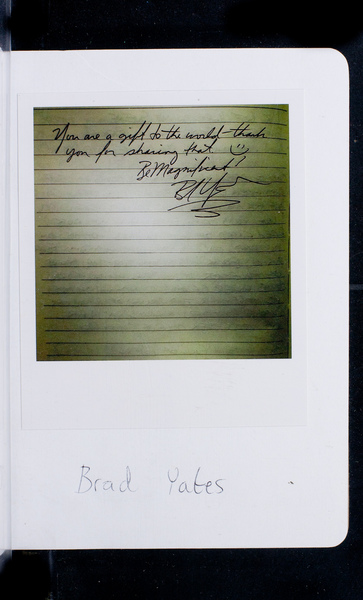 You are a gift to the world - thank
you for sharing that :)
Be Magnificent!
Brad Yates